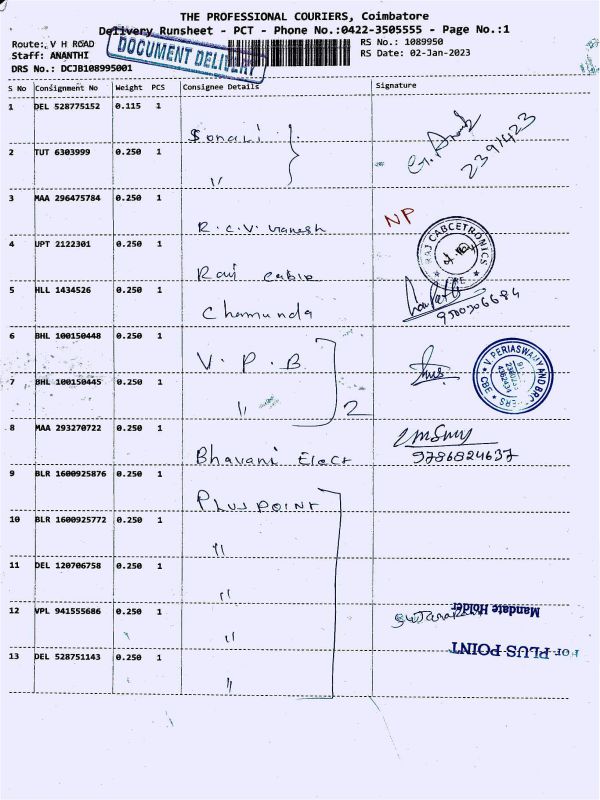 THE PROFESSIONAL COURIERS, Coimbatore
Delivery Runsheet - PCT - Phone No.:0422-3505555 - Page No.:1
Route: V H ROAD
DOCUMENT DELIVERY
RS No.: 1089950
Staff: ANANTHI
RS Date: 02-Jan-2023
DRS No.: DCJB108995001
S No Consignment No Weight PCS Consignee Details Signature
1 DEL 528775152 0.115 1 Sonali
2 TUT 6303999 0.250 1 "
3 MAA 296475784 0.250 1 R.C.V. NP
4 UPT 2122301 0.250 1 Raj Cable RAJ CABCETRONICS CBE
5 HLL 1434526 0.250 1 Chamunda 9500306684
6 BHL 100150448 0.250 1 V.P.B V. PERIASWAMY AND BROTHERS CBE
7 BHL 100150445 0.250 1 " 2
8 MAA 293270722 0.250 1 Bhavani Elect 9786824637
9 BLR 1600925876 0.250 1 PLUS POINT
10 BLR 1600925772 0.250 1 "
11 DEL 120706758 0.250 1 "
12 VPL 941555686 0.250 1 " Mandate Holder
13 DEL 528751143 0.250 1 " For PLUS POINT